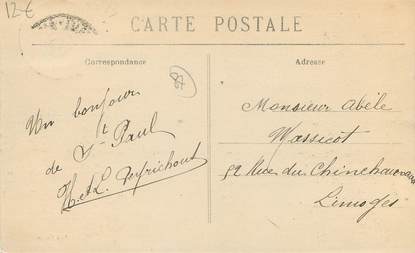 12€
CARTE POSTALE
Correspondance
Adresse
87
Un bonjour
de St Paul
H. et L. Peyrichout
Monsieur Abèle
Wassicot
52 Rue du Chinchauvaud
Limoges